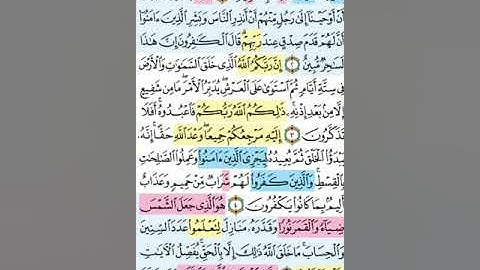 أَنْ أَوْحَيْنَا إِلَىٰ رَجُلٍ مِّنْهُمْ أَنْ أَنذِرِ النَّاسَ وَبَشِّرِ الَّذِينَ ءَامَنُوا
أَنَّ لَهُمْ قَدَمَ صِدْقٍ عِندَ رَبِّهِمْ قَالَ الْكَافِرُونَ إِنَّ هَٰذَا
لَسَاحِرٌ مُّبِينٌ ٢ إِنَّ رَبَّكُمُ اللَّهُ الَّذِي خَلَقَ السَّمَاوَاتِ وَالْأَرْضَ
فِي سِتَّةِ أَيَّامٍ ثُمَّ اسْتَوَىٰ عَلَى الْعَرْشِ يُدَبِّرُ الْأَمْرَ مَا مِن شَفِيعٍ
إِلَّا مِن بَعْدِ إِذْنِهِ ذَٰلِكُمُ اللَّهُ رَبُّكُمْ فَاعْبُدُوهُ أَفَلَا
تَذَكَّرُونَ ٣ إِلَيْهِ مَرْجِعُكُمْ جَمِيعًا وَعْدَ اللَّهِ حَقًّا إِنَّهُ
يَبْدَؤُا الْخَلْقَ ثُمَّ يُعِيدُهُ لِيَجْزِيَ الَّذِينَ ءَامَنُوا وَعَمِلُوا الصَّالِحَاتِ
بِالْقِسْطِ وَالَّذِينَ كَفَرُوا لَهُمْ شَرَابٌ مِّنْ حَمِيمٍ وَعَذَابٌ
أَلِيمٌ بِمَا كَانُوا يَكْفُرُونَ ٤ هُوَ الَّذِي جَعَلَ الشَّمْسَ
ضِيَاءً وَالْقَمَرَ نُورًا وَقَدَّرَهُ مَنَازِلَ لِتَعْلَمُوا عَدَدَ السِّنِينَ
وَالْحِسَابَ مَا خَلَقَ اللَّهُ ذَٰلِكَ إِلَّا بِالْحَقِّ يُفَصِّلُ الْآيَاتِ